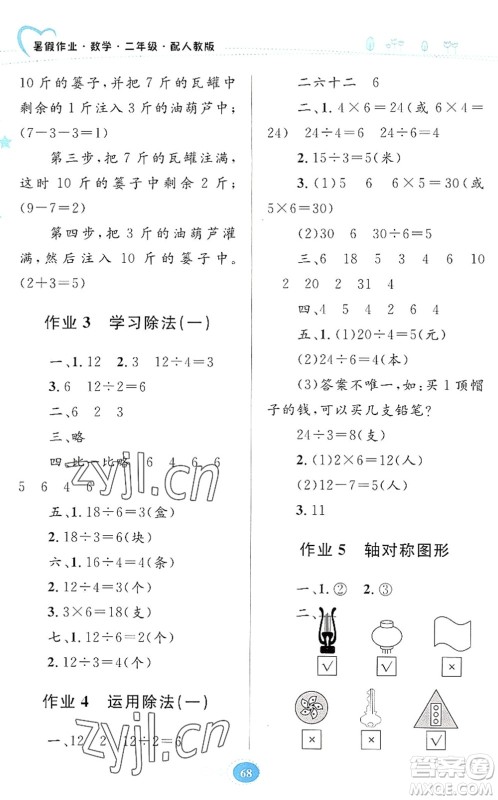 暑假作业·数学·二年级·配人教版
10 斤的篓子中并把 7 斤的瓦罐中
剩余的 1 斤注入 3 斤的油葫芦中:
(7－3－3＝1)
第三步,把 7 斤的瓦罐注满,
这时 10 斤的篓子中剩余 2 斤:
(9－7＝2)
第四步,把 3 斤的油葫芦灌
满,然后注入 10 斤的篓子中。
(2＋3＝5)
作业 3 学习除法(一)
一、1. 12 2. 3 12÷4＝3
3. 6 12÷2＝6
二、6 2 3
三、略
四、比一比略 6 4 6 4
5 6 4 6
五、1. 12÷4＝3(盒)
2. 18÷3＝6(块)
六、1. 16÷4＝4(条)
2. 3×6＝18(名)
七、1. 12÷6＝2(束)
2. 12÷3＝4(束)
作业 4 运用除法(一)
一、12 2 12÷2＝6
二六十二 6
二、1. 4×6＝24(或 6×4＝
24) 24÷4＝6 24÷6＝4
2. 15÷3＝5(米)
3. (1)5 6 6×5＝30(或
5×6＝30)
(2)30÷5＝6
三、6 18 5 3 4 6 10
2 20 2 4 31 4
四、4 5 2 4
五、1. (1)20÷4＝5(元)
(2)16÷4＝4(本)
(3)答案不唯一,如:买 1 顶帽
子的钱,可以买几支铅笔?
24÷3＝8(支)
2. (1)2×6＝12(人)
(2)12－7＝5(人)
3. 11
作业 5 轴对称图形
一、1. ② 2. ③
二、
√ √ ×
× × √
68
zyjl.cn
zyjl.cn
答案圈
MXQE.COM